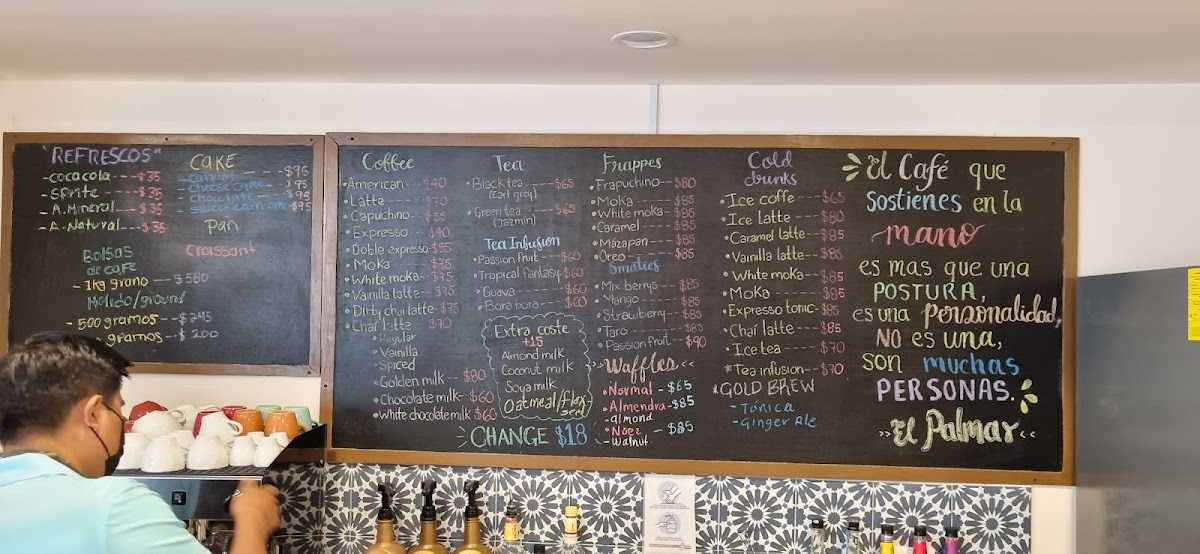 "REFRESCOS"
- cocacola ---- $35
- Sprite --- $35
- A. Mineral --- $35
- A. Natural --- $35
Bolsas
de cafe
- 1kg grano --- $580
Molido/ground
- 500 gramos --- $345
gramos -- $200
CAKE
- carrot -- $95
- cheese cake $95
- chocolate $95
- sweet corn cake $95
Pan
Croissant
Coffee
• American --- $40
• Latte --- $70
• Capuchino -- $65
• Expresso -- $40
• Doble expresso $55
• Moka --- $75
• White moka -- $75
• Vainilla latte -- $75
• Dirty chai latte - $75
• Chai latte $70
• Regular
• Vainilla
• Spiced
• Golden milk --- $80
• Chocolate milk -- $60
• White chocolate milk $60
Tea
• Black tea --- $65
(Earl grey)
• Green tea --- $65
(Jazmin)
Tea Infusion
• Passion fruit -- $60
• Tropical fantasy- $60
• Guava --- $60
• Bora bora -- $60
Extra coste
+15
Almond milk
Coconut milk
Soya milk
Oatmeal/flax
seed
CHANGE $18
Frappes
• Frapuchino --- $80
• Moka --- $85
• White moka --- $85
• Caramel --- $85
• Mazapan --- $85
• Oreo --- $85
Smoties
• Mix berrys --- $85
• Mango --- $85
• Strawberry --- $85
• Taro --- $85
• Passion fruit -- $90
Waffles
• Normal - $65
• Almendra - $85
- almond
• Nuez - $85
- walnut
Cold
drinks
• Ice coffe --- $65
• Ice latte --- $80
• Caramel latte --- $85
• Vainilla latte --- $85
• White moka --- $85
• Moka --- $85
• Expresso tonic - $85
• Chai latte --- $85
• Ice tea --- $70
• Tea infusion --- $70
• GOLD BREW
- Tónica
- Ginger Ale
El Café que
Sostienes en la
mano
es mas que una
POSTURA,
es una Personalidad,
NO es una,
SON muchas
PERSONAS.
El Palmar